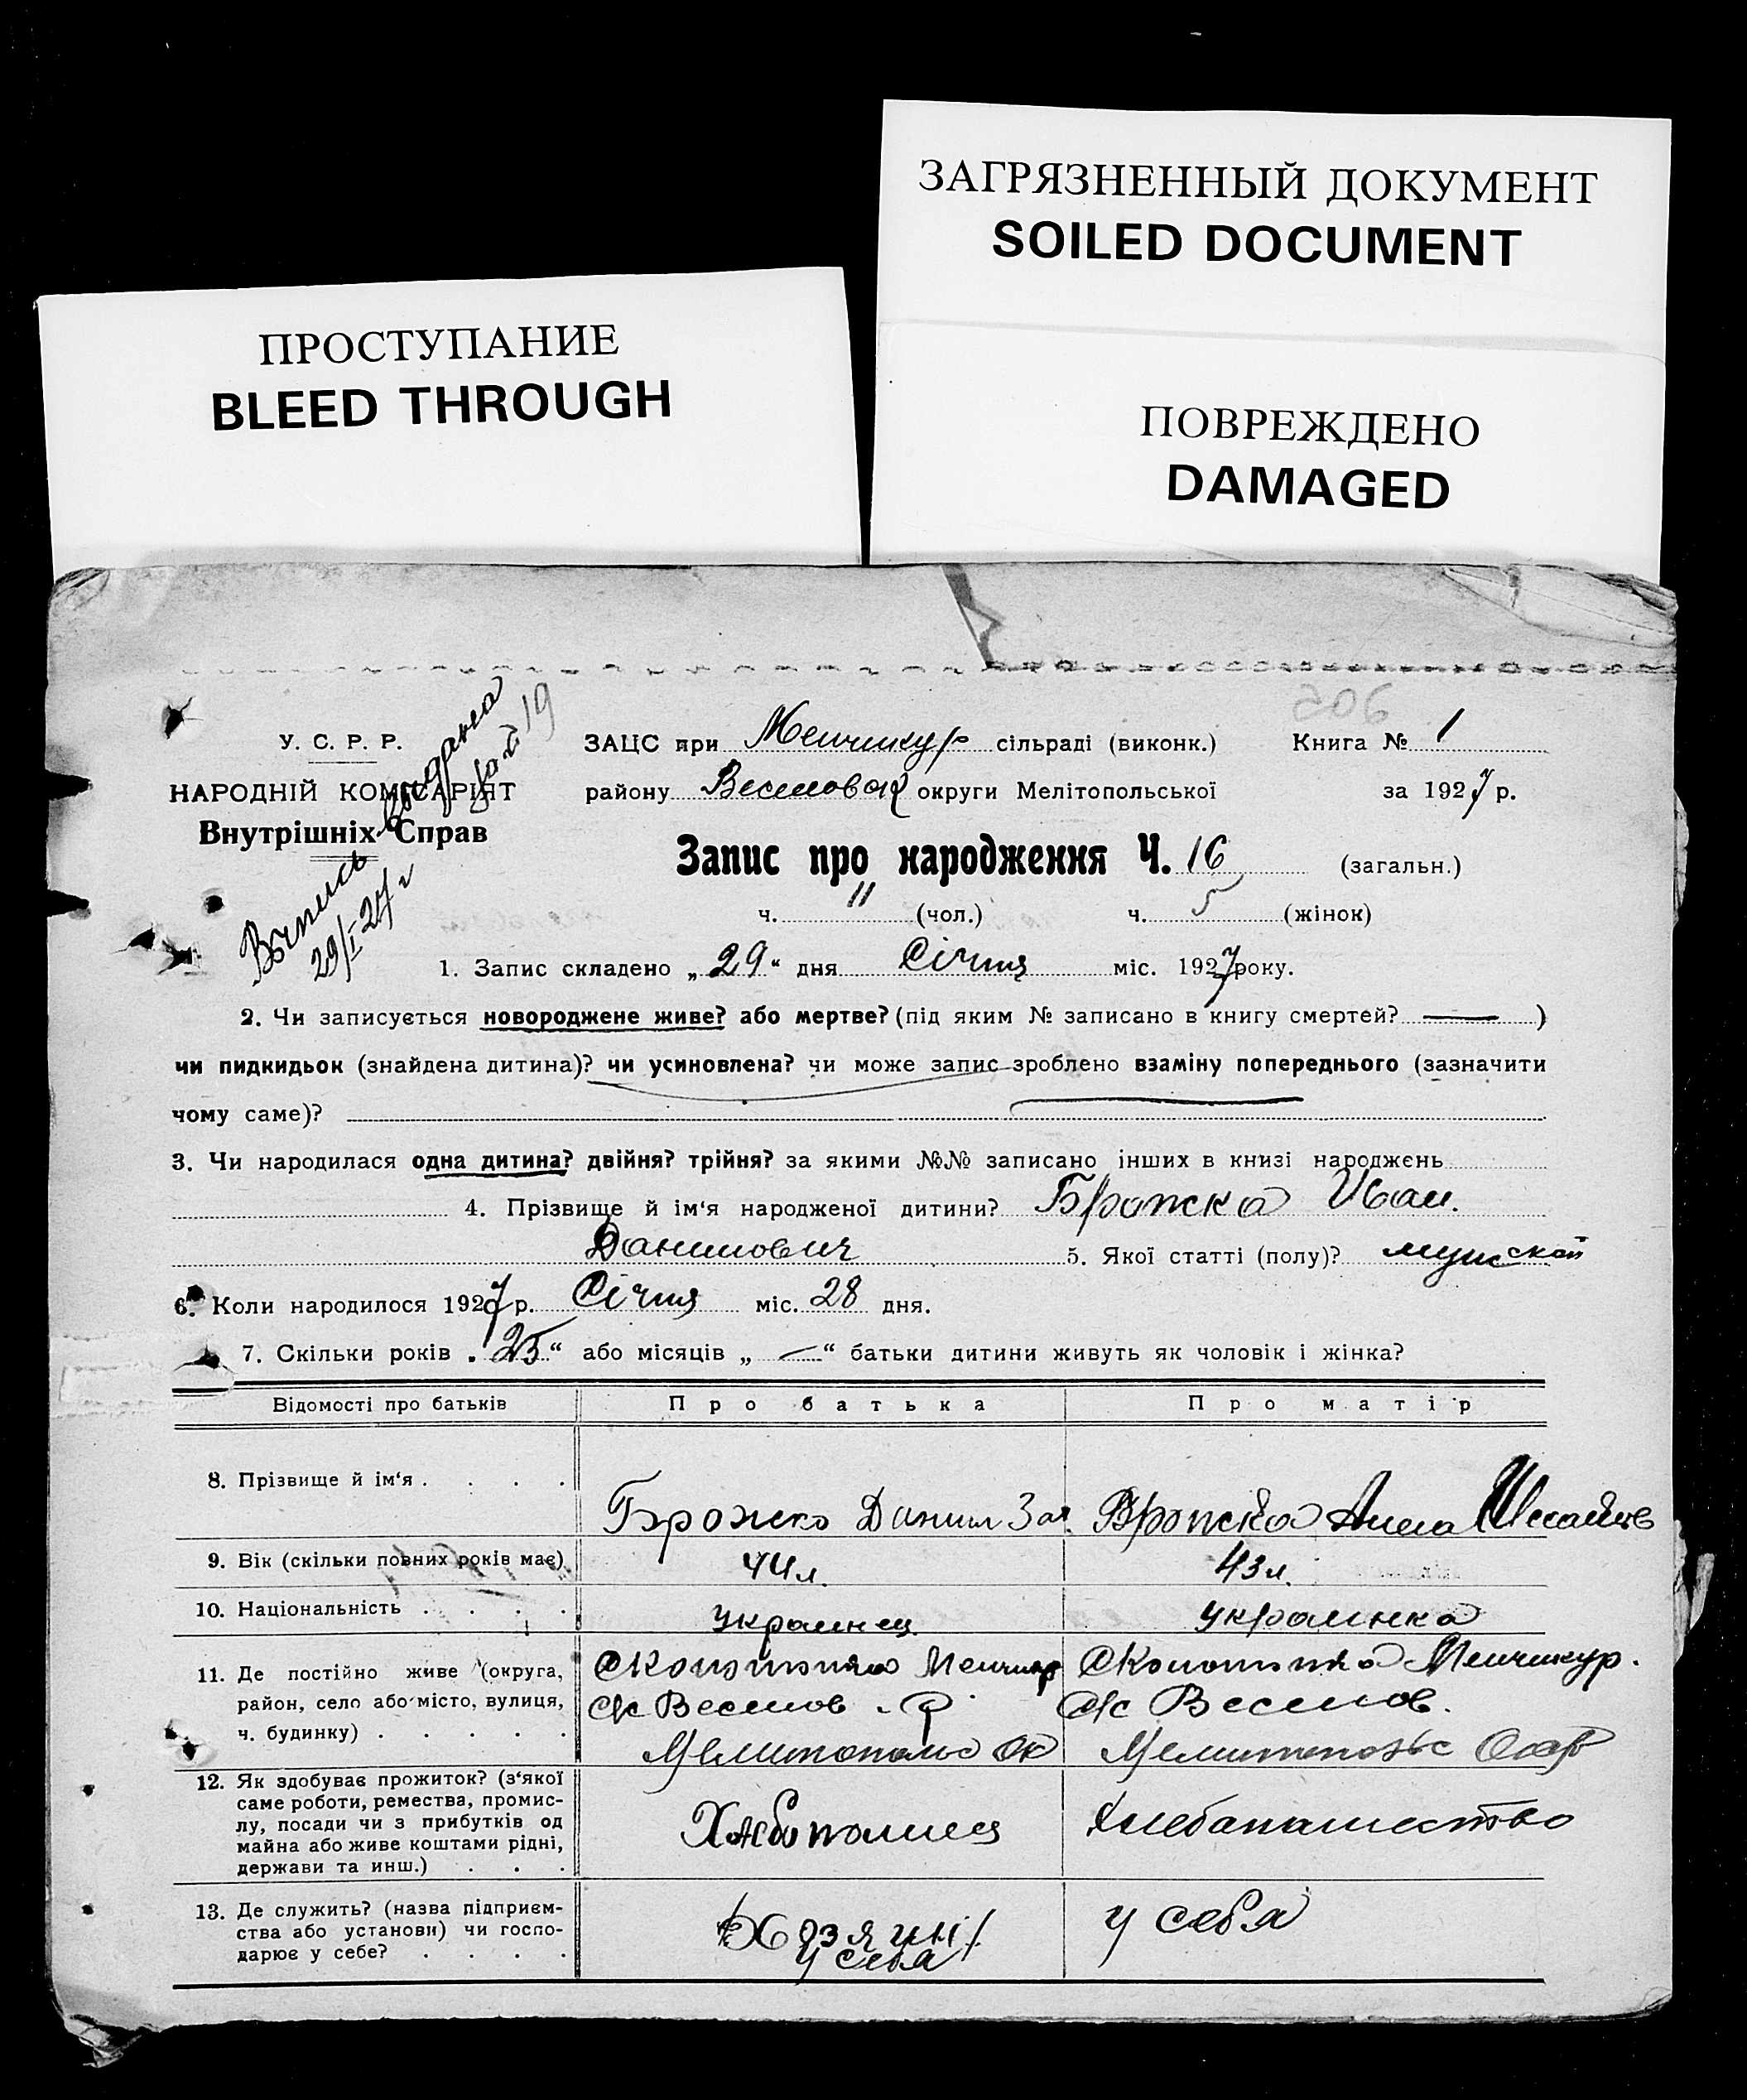 ЗАГРЯЗНЕННЫЙ ДОКУМЕНТ
SOILED DOCUMENT
ПРОСТУПАНИЕ
BLEED THROUGH
ПОВРЕЖДЕНО
DAMAGED
506
У. С. Р. Р.
НАРОДНІЙ КОМІСАРІЯТ
Внутрішніх Справ
29/I-27 г
19
ЗАЦС при Менчикур сільраді (виконк.) Книга № 1
району Веселовск округи Мелітопольської за 1927 р.
Запис про народження Ч. 16 (загальн.)
ч. 11 (чол.) ч. 5 (жінок)
1. Запис складено „ 29 “ дня Січня міс. 1927 року.
2. Чи записується новороджене живе? або мертве? (під яким № записано в книгу смертей? — )
чи пидкидьок (знайдена дитина)? чи усиновлена? чи може запис зроблено взаміну попереднього (зазначити
чому саме)?
3. Чи народилася одна дитина? двійня? трійня? за якими №№ записано інших в книзі народжєнь
4. Прізвище й ім‘я народженої дитини? Брожко Иван.
Данилович 5. Якої статті (полу)? мужской
6. Коли народилося 1927 р. Січня міс. 28 дня.
7. Скільки років „ 25 “ або місяців „ — “ батьки дитини живуть як чоловік і жінка?
Відомості про батьків Про батька Про матір
8. Прізвище й ім‘я . . . . Брожко Данил Зах. Брожко Анна
9. Вік (скільки повних років має) 44 л. 43 л.
10. Національність . . . . украинец украинка
11. Де постійно живе (округа, Менчикур Менчикур.
район, село або місто, вулиця, с/с Веселов. р с/с Веселов.
ч. будинку) . . . . . Мелитопольс Ок Мелитопольс Окр
12. Як здобуває прожиток? (з‘якої
саме роботи, ремества, промис-
лу, посади чи з прибутків од Хлебопашец Хлебопашество
майна або живе коштами рідні,
держави та инш.) . . .
13. Де служить? (назва підприєм-
ства або установи) чи госпо- Хозяин у себя
дарює у себе? . . . . у себя